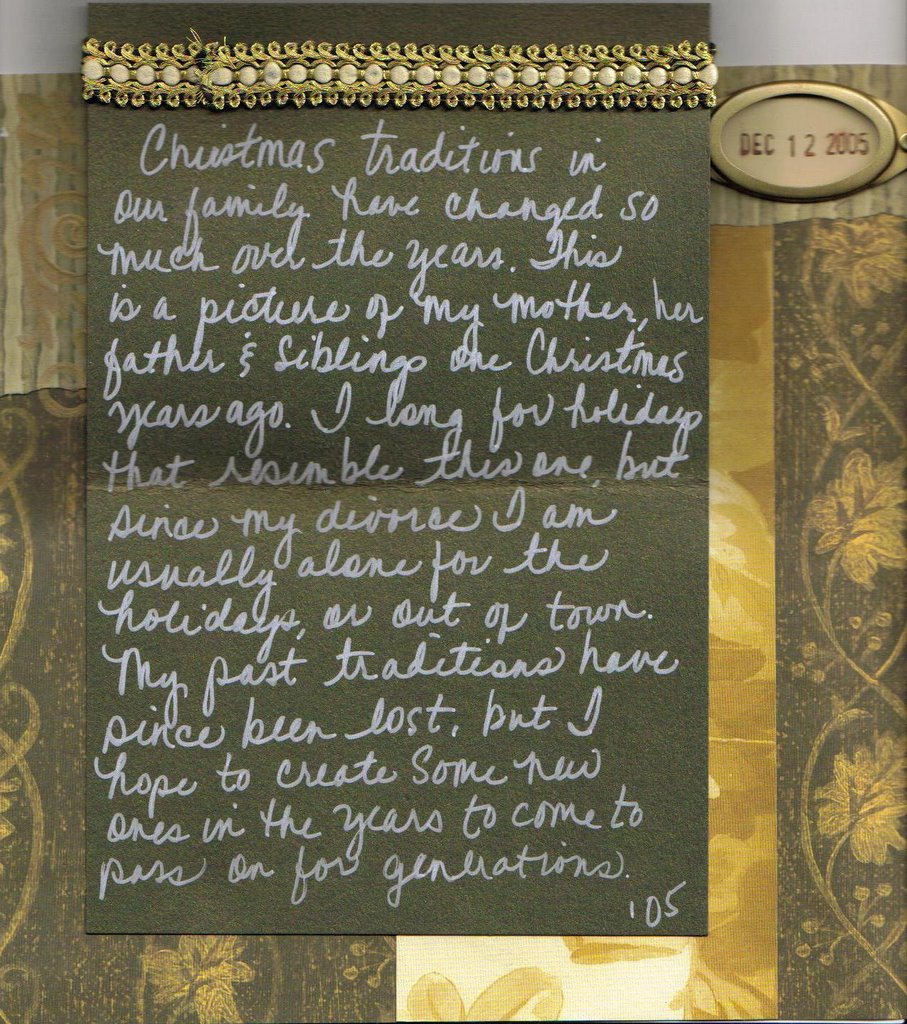 Christmas traditions in
our family have changed so
much over the years. This
is a picture of my mother, her
father & siblings one Christmas
years ago. I long for holidays
that resemble this one, but
since my divorce I am
usually alone for the
holidays, or out of town.
My past traditions have
since been lost, but I
hope to create some new
ones in the years to come to
pass on for generations.
'05
DEC 12 2005